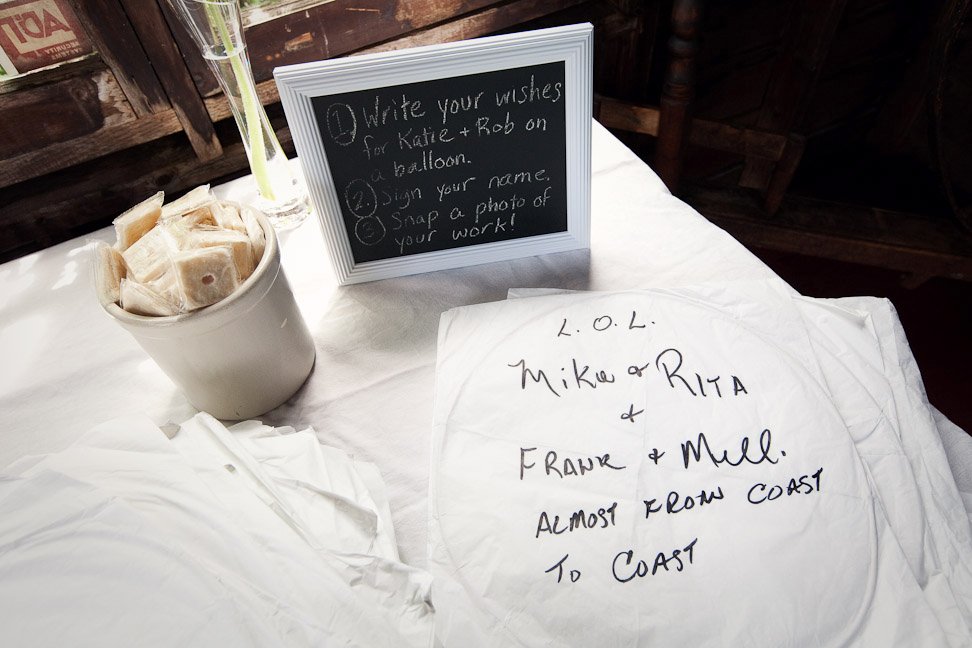 ADT
① Write your wishes
for Katie + Rob on
a balloon.
② Sign your name.
③ Snap a photo of
your work!
L. O. L.
Mike & RITA
+
FRANK + Mell.
ALMOST FROM COAST
TO COAST